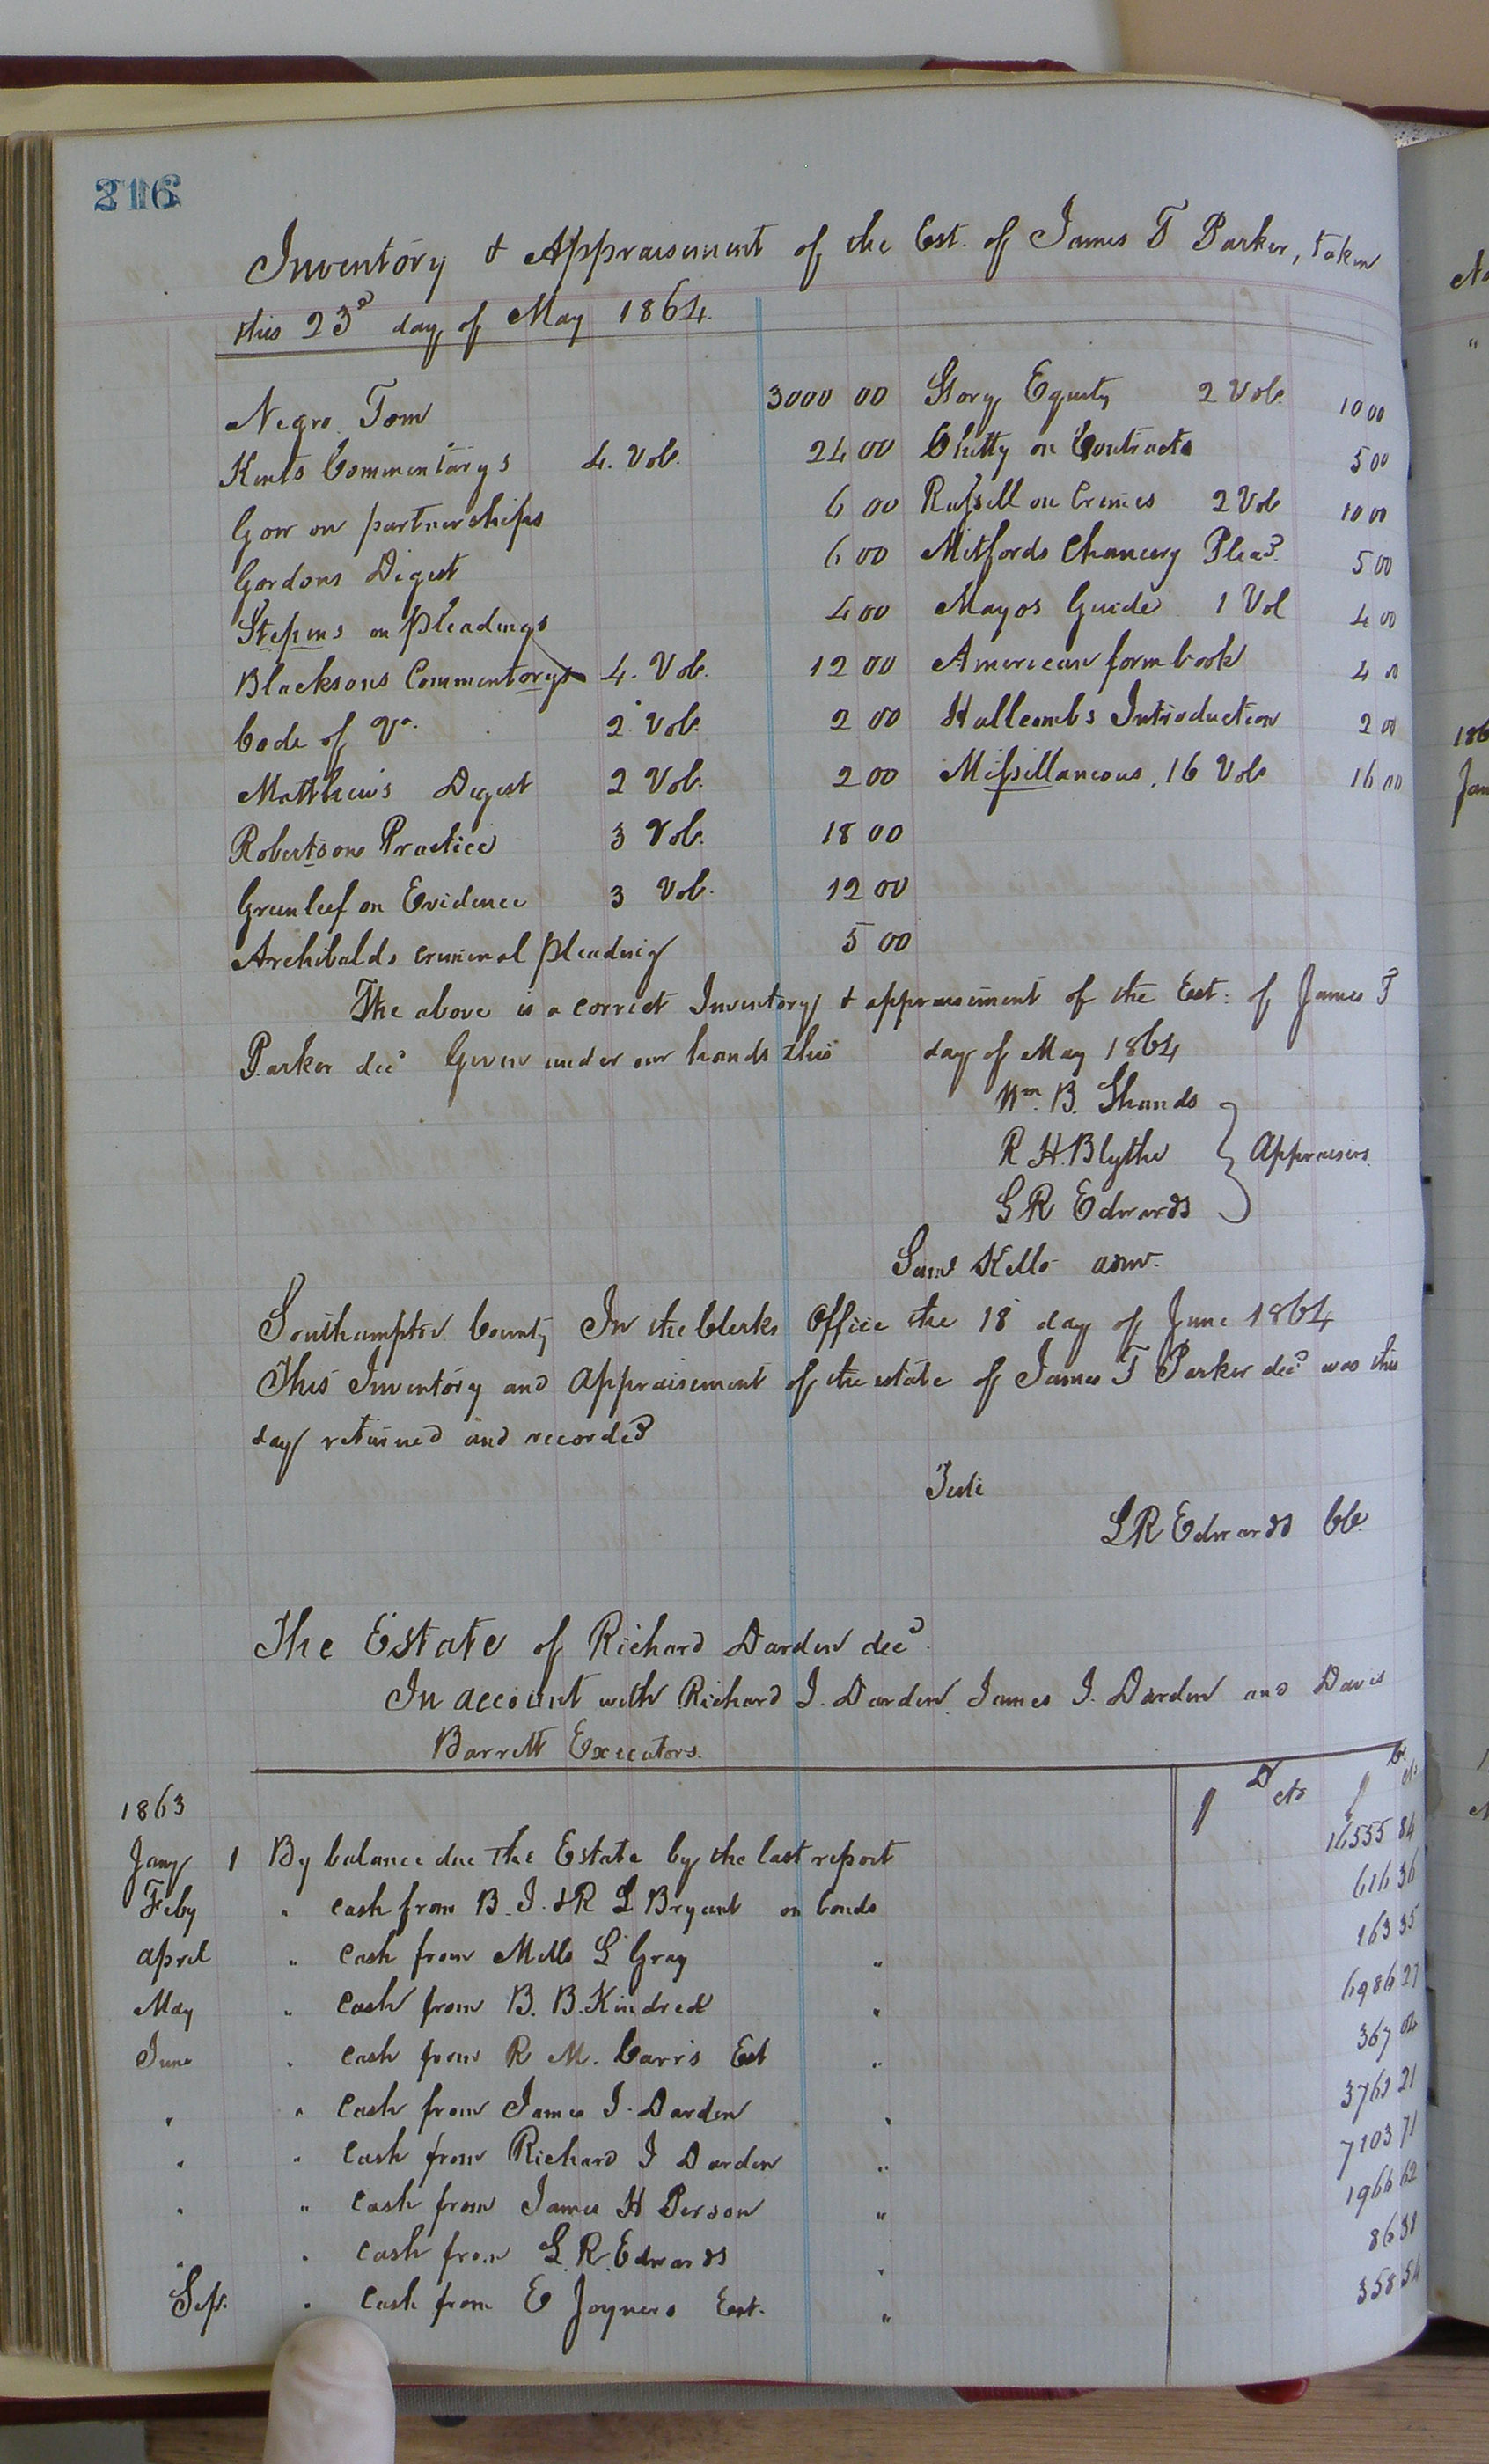 216
Inventory & Appraisement of the Est. of James T Parker, taken
this 23d day of May 1864.
Negro Tom 3000 00 Story Equity 2 Vols. 10 00
Kents Commentarys 4. Vols. 24 00 Chitty on Contracts 5 00
Gow on partnerships 6 00 Russell on Crimes 2 Vols 10 00
Gordons Digest 6 00 Mitfords Chancery Pleads. 5 00
Stepens on Pleadings 4 00 Mayos Guide 1 Vol 4 00
Blacksons Commentorys 4. Vols. 12 00 American form book 4 00
Code of Va. 2 Vols. 2 00 Hallcombs Introduction 2 00
Matthews Digest 2 Vols. 2 00 Missillaneous, 16 Vols 16 00
Robertsons Practice 3 Vols. 18 00
Greenleef on Evidence 3 Vols. 12 00
Archibalds criminal pleading 5 00
The above is a correct Inventory & appraisement of the Est: of James T
Parker decd Given under our hands this day of May 1864
Wm. B. Shands
R H. Blythe } Appraisers.
G R Edwards
Saml Kello adm.
Southampton County In the Clerks Office the 18 day of June 1864
This Inventory and Appraisement of the estate of James T Parker decd was this
day returned and recorded
Teste
L R Edwards Clk.
The Estate of Richard Darden decd.
In account with Richard J. Darden James J. Darden and Davis
Barrett Executors.
1863 $ D cts $ Cr. cts
Jany 1 By balance due the Estate by the last report 16555 84
Feby " cash from B. J. & R L Bryant on bonds 616 36
April " Cash from Mills L Gray " 163 35
May " Cash from B. B. Kindred " 6986 27
June " Cash from R M. Carrs Est " 367 04
" " Cash from James J. Darden " 3762 21
" " Cash from Richard J Darden " 7103 71
" " Cash from James H Person " 1966 62
" " Cash from L. R. Edwards " 86 31
Sep. " Cash from E Joyners Est. " 358 54